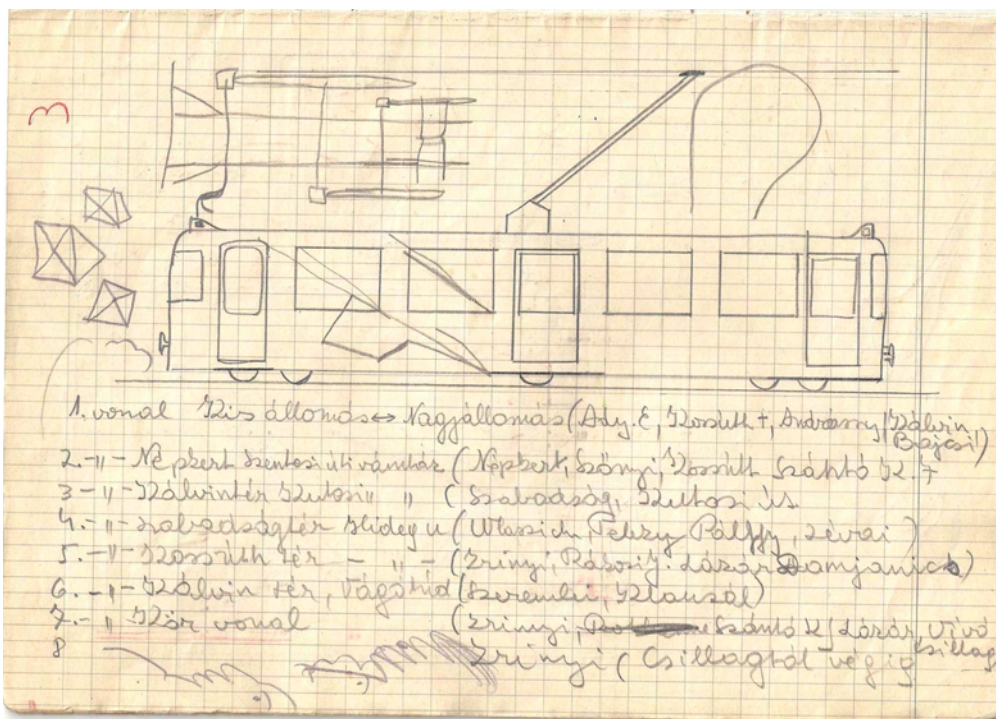 3
1. vonal Kis állomás ↔ Nagyállomás (Ady. E, Kossuth t, Andrássy, Kálvin, Bajcsi)
2. -"- Népkert Szentesi úti vámház (Népkert, Szőnyi, Kossuth Szántó K. 7
3 -"- Kálvintér Kutosi " " ( Szabadság, Kutosi út
4. -"- Szabadságtér Hideg u (Wlassich, Teleky Pálffy, Lévai )
5. -"- Kossuth tér - " - (Zrinyi, Rákosi J. Lázár Damjanich)
6. -"- Kálvin tér, Vágóhíd (Szeremlei, Klauzál)
7. - " Kör vonal (Zrinyi, Szántó K, Lázár, Vívó Csillag
8 Zrinyi ( Csillagtól végig